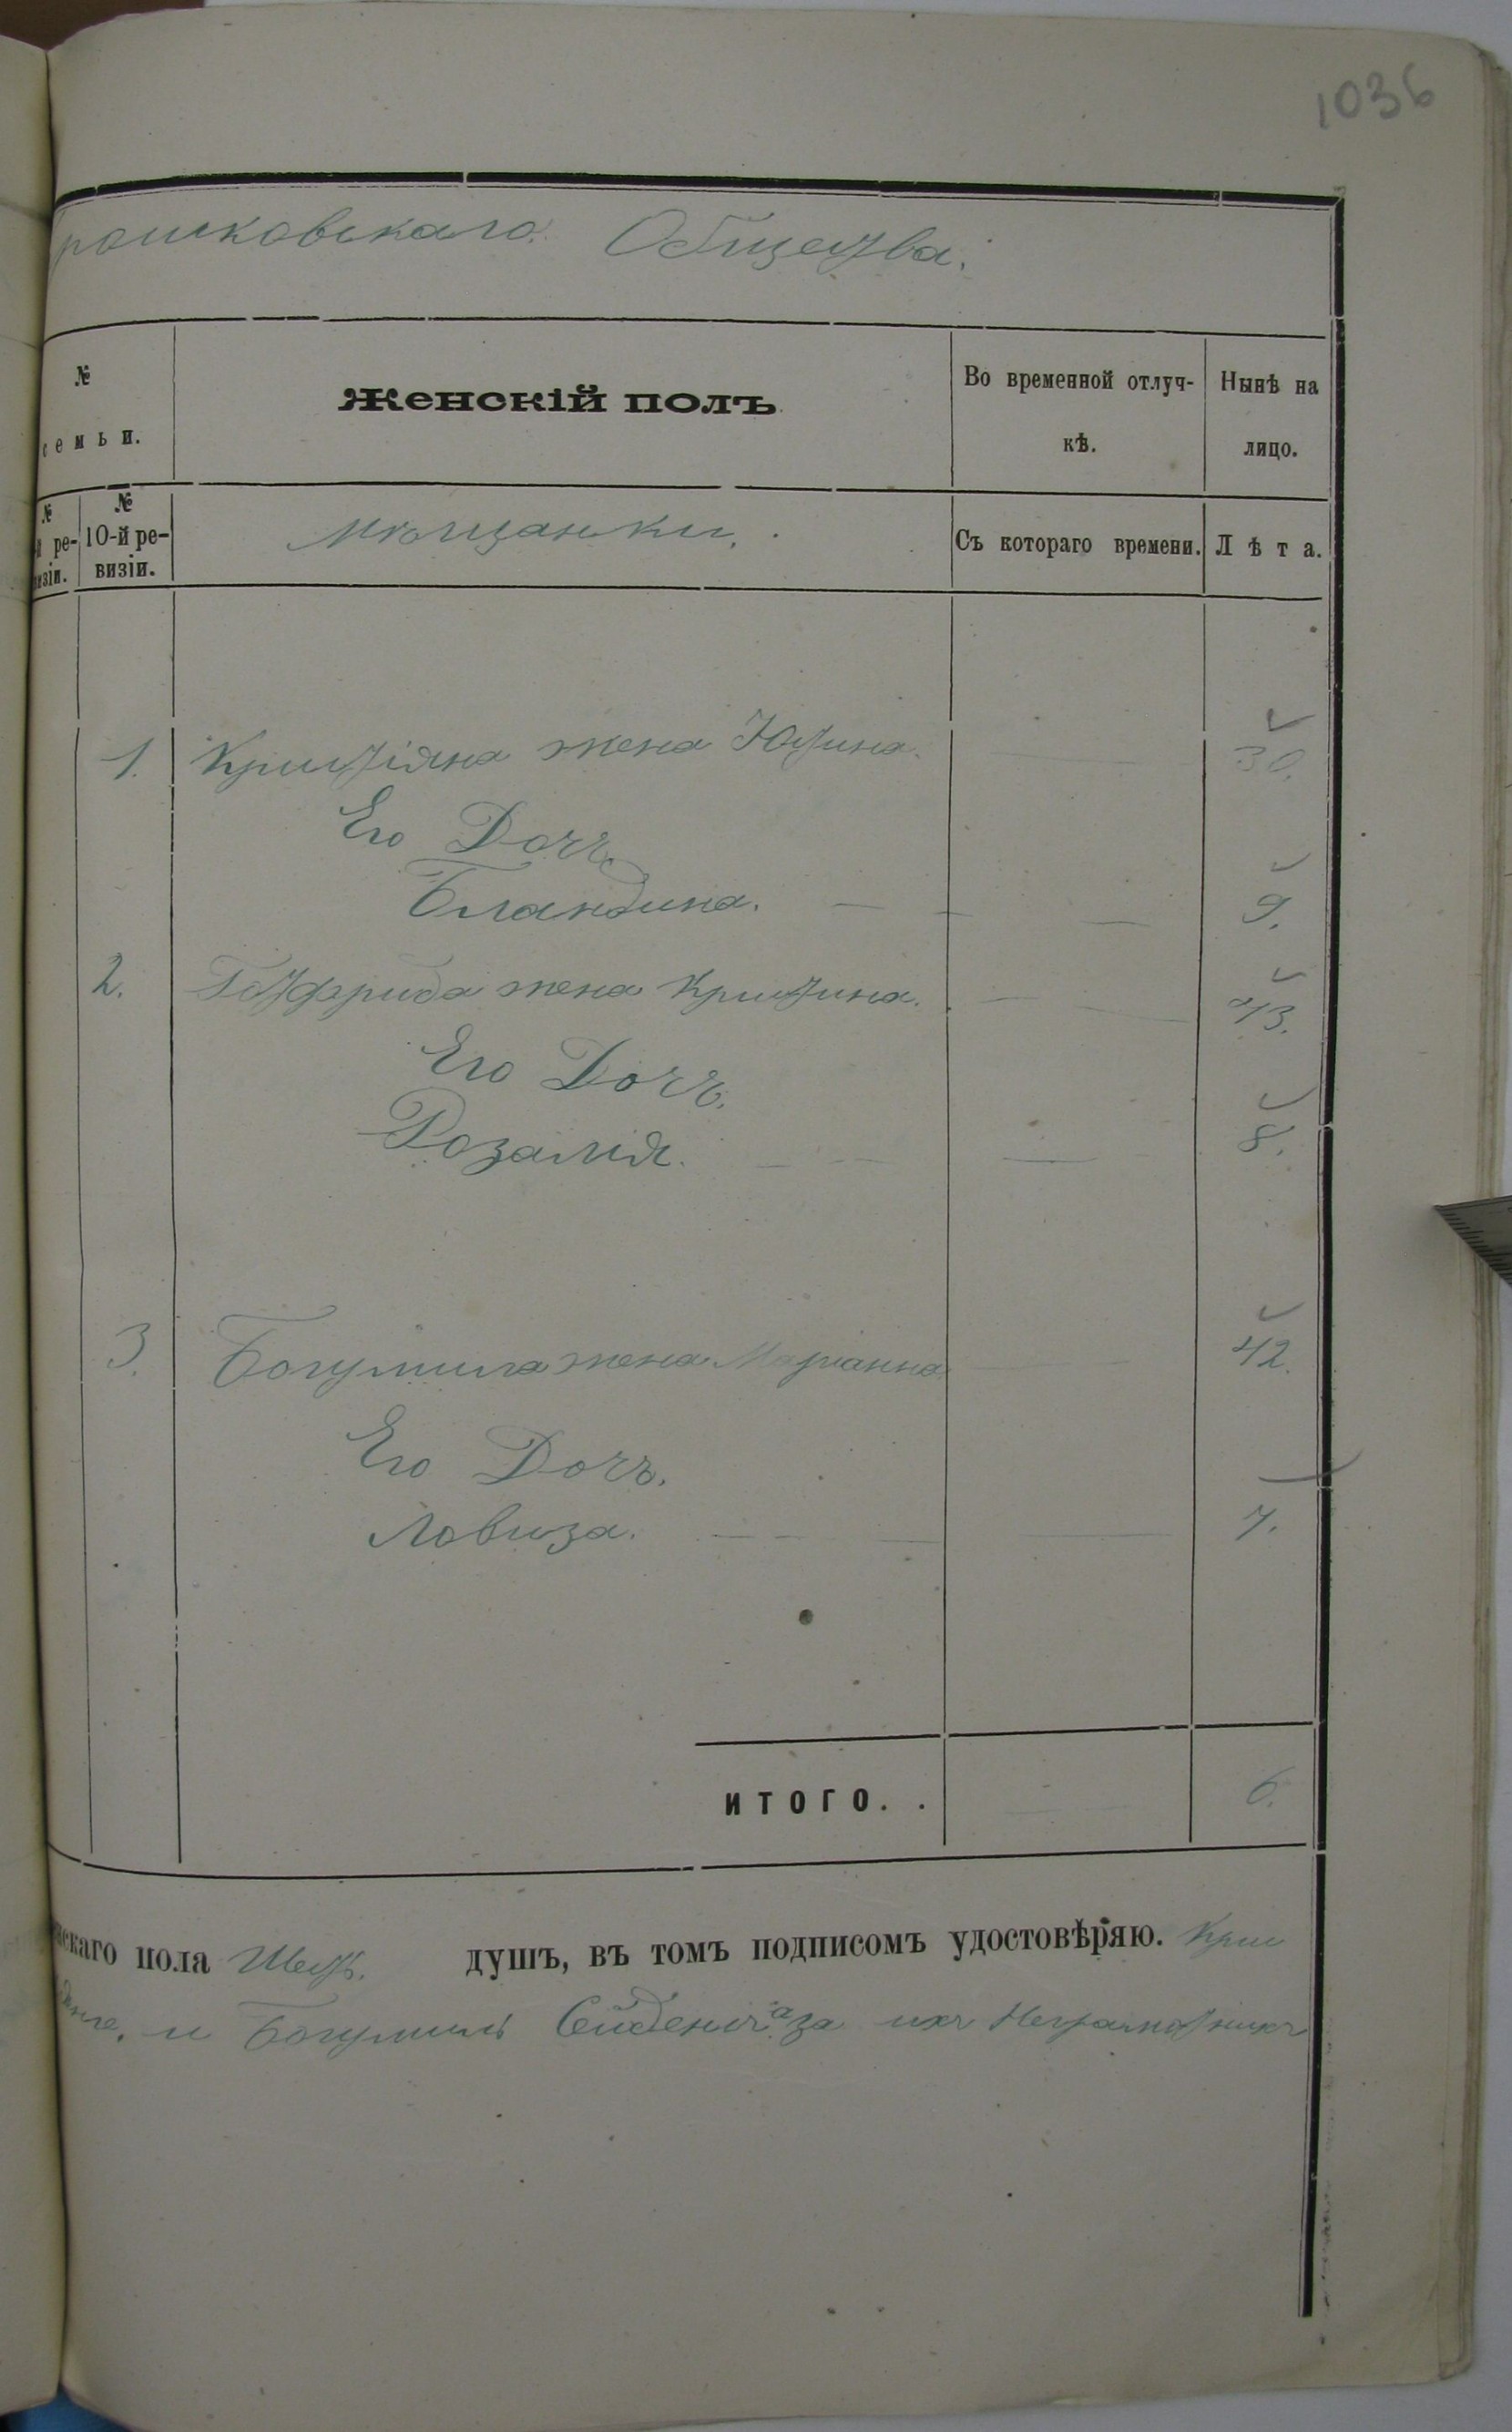 1036
рошковскаго Общества.
№
семьи.
Женскій полъ
Во временной отлуч-
кѣ.
Нынѣ на
лицо.
№
й ре-
визіи.
№
10-й ре-
визіи.
Мѣщанки.
Съ котораго времени.
Лѣта.
1. Христіяна жена Юстина. 30.
Его Дочь
Бландина. 9.
2. Готфрида жена Христина. 43.
Его Дочь.
Розалія. 8.
3. Богумила жена Марианна 42.
Его Дочь.
Ловиза. 7.
ИТОГО. . 6.
нскаго пола Шесть. душъ, въ томъ подписомъ удостовѣряю. Хрис
и Богумилъ за ихъ Неграмотныхъ